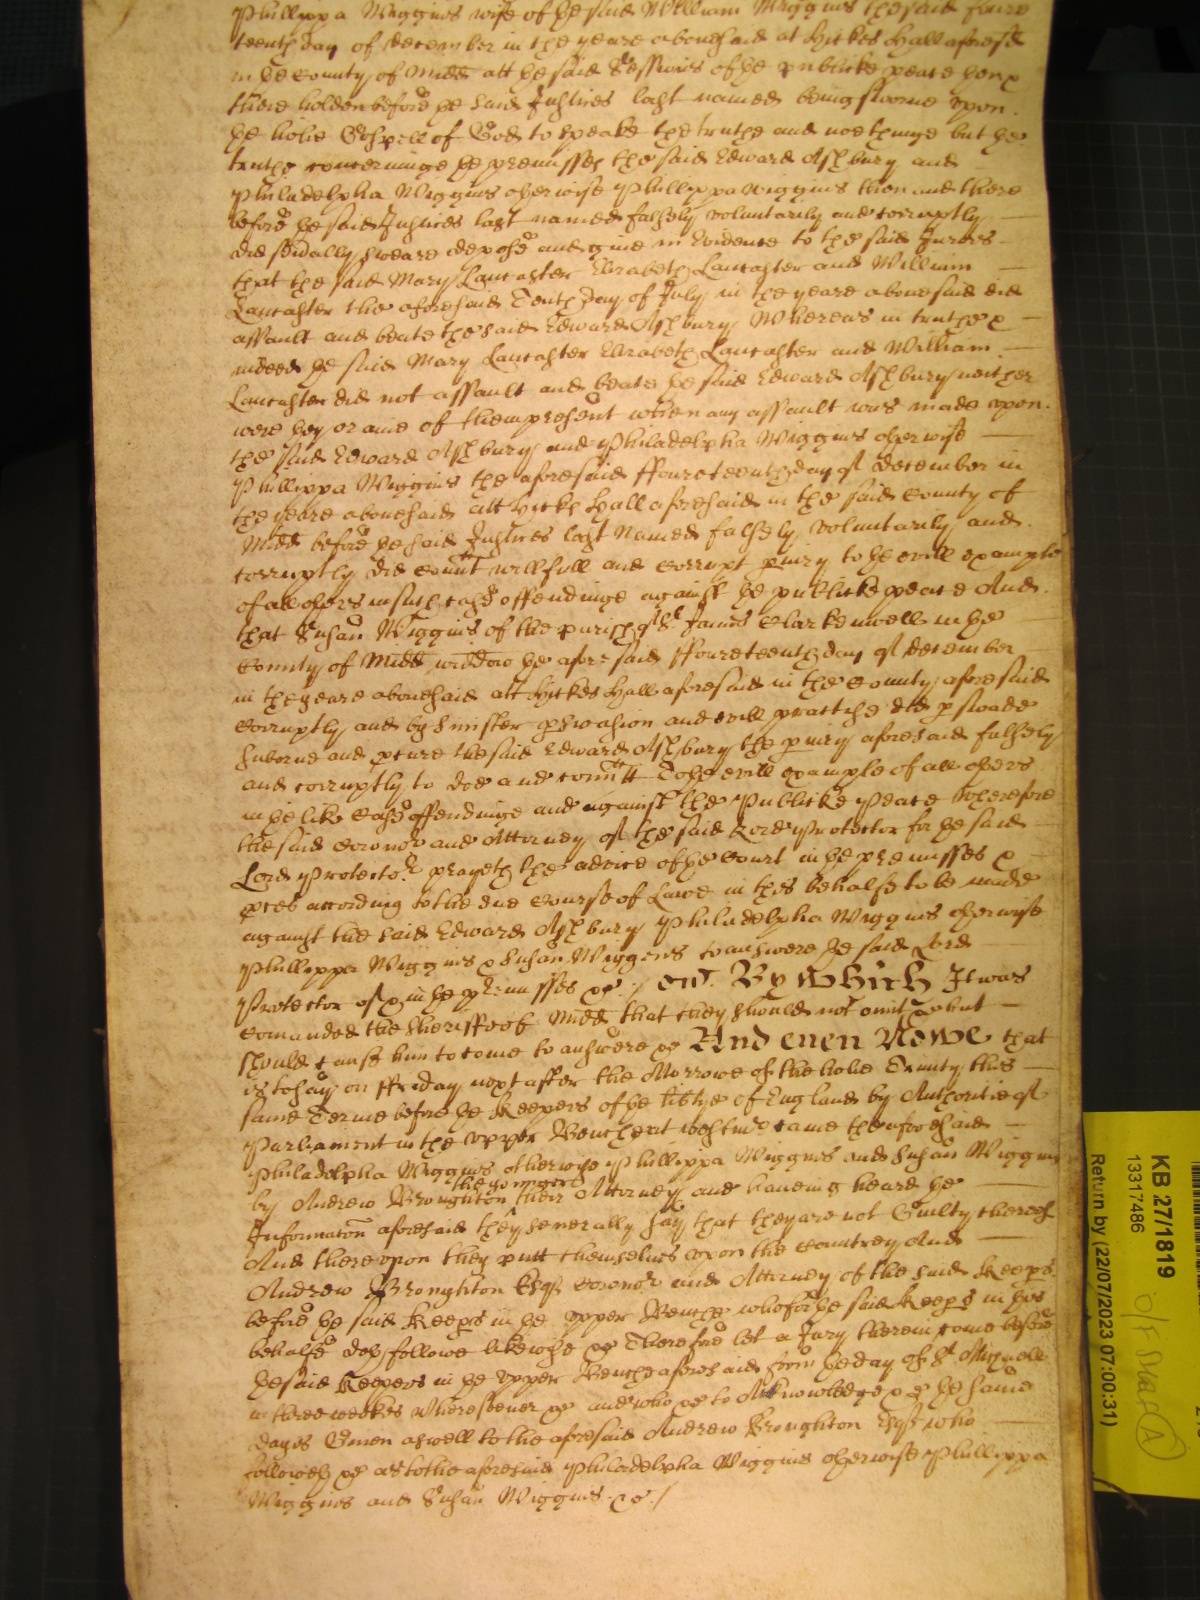 Phillippa Wiggins wife of the said William Wiggins the said foure
teenth day of December in the yeare abovesaid at Hickes Hall aforesd
in the County of Midd att the said Sessions of the publicke peace then &
there holden before the said Justices last named being sworne upon
the holie Gospell of God to speake the truthe and nothinge but the
truthe concerninge the premisses the said Edward Ashbury and
Philadelphia Wiggins otherwise Phillippa Wiggins then and there
before the said Justices last named falsely voluntarily and corruptly
did seidally sweare depose and give in Evidence to the said Jurors
that the said Mary Lancaster Elizabeth Lancaster and William
Lancaster the aforesaid Tenth day of July in the yeare abovesaid did
assault and beate the said Edward Ashbury Whereas in truthe &
indeed the said Mary Lancaster Elizabeth Lancaster and William
Lancaster did not assault and beate the said Edward Ashbury neither
were they or anie of them present when any assault was made upon
the said Edward Ashbury and Philadelphia Wiggins otherwise
Phillippa Wiggins the aforesaid ffoureteenth day of December in
the yeare abovesaid att Hickes Hall aforesaid in the said County of
Midd before the said Justices last named falsely voluntarily and
corruptly did comitt willfull and corrupt piury to the evill example
of all others in such case offendinge against the publicke peace And
that Susan Wiggins of the parish of St James Clarkenwell in the
County of Midd widdow the aforesaid ffoureteenth day of December
in the yeare abovesaid att Hickes Hall aforesaid in the County aforesaid
corruptly and by sinister pswasion and evill practise did pswade
suborne and pcure the said Edward Ashbury the piury aforesaid falsely
and corruptly to doe and comitt To the evill example of all others
in the like case offendinge and against the Publicke Peace Wherefore
the said Coronor and Attorney of the said Lord Protector for the said
Lord Protector prayeth the advice of the Court in the premisses &
pces according to the due Course of Lawe in this behalfe to be made
against the said Edward Ashbury Philadelphia Wiggins otherwise
Phillippa Wiggins & Susan Wiggens to answere the said Lord
Protector of & in the premisses &c By Which It was
Comanded the Sheriffe of Midd that they should not omitt &c but
should cause him to come to answere &c And even Nowe that
is to say on ffriday next after the Morrowe of the holie Trinity this
same Terme before the Keepers of the libtye of England by Authoritie of
Parliament in the Upper Benche at Westmr came the aforesaid
Philadelphia Wiggins otherwise Phillippa Wiggins and Susan Wiggins
by Andrew Broughton the yonger their Attorney and haveing heard the
Informacon aforesaid they severally say that they are not Guilty thereof
And thereupon they putt themselves upon the Countrey And
Andrew Broughton Esqr Coronor and Attorney of the said Keeps
before the said Keeps in the Upper Benche who for the said Keeps in this
behalfe doth followe likewise &c Therefore let a Jury therein come before
the said Keepers in the Upper Benche aforesaid from the day of St Michaell
in three weekes Wheresoever &c and who &c to Acknowledge &c the same
day is Given aswell to the aforesaid Andrew Broughton Esqr who
followeth &c as to the aforesaid Philadelphia Wiggins otherwise Phillippa
Wiggins and Susan Wiggins &c /
KB 27/1819
13317486
Return by (22/07/2023 07:00:31)